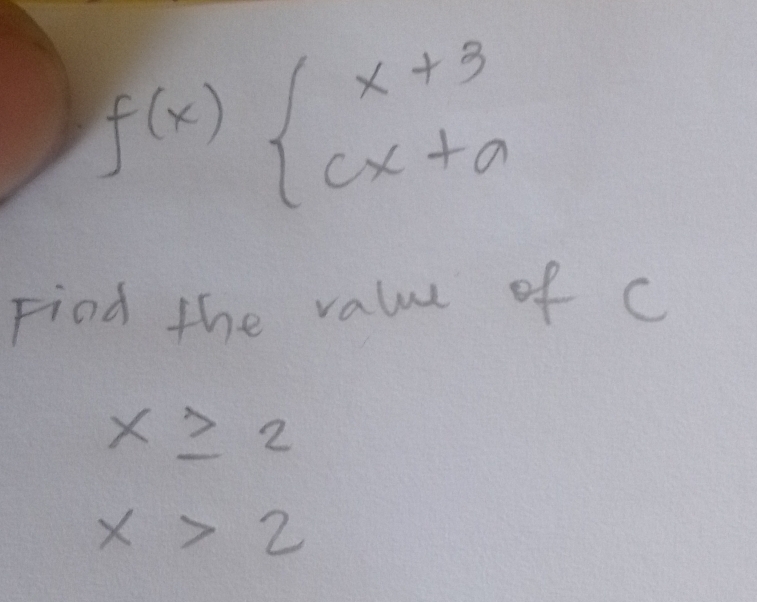 f(x) { x + 3
cx + a
Find the value of c
x ≥ 2
x > 2